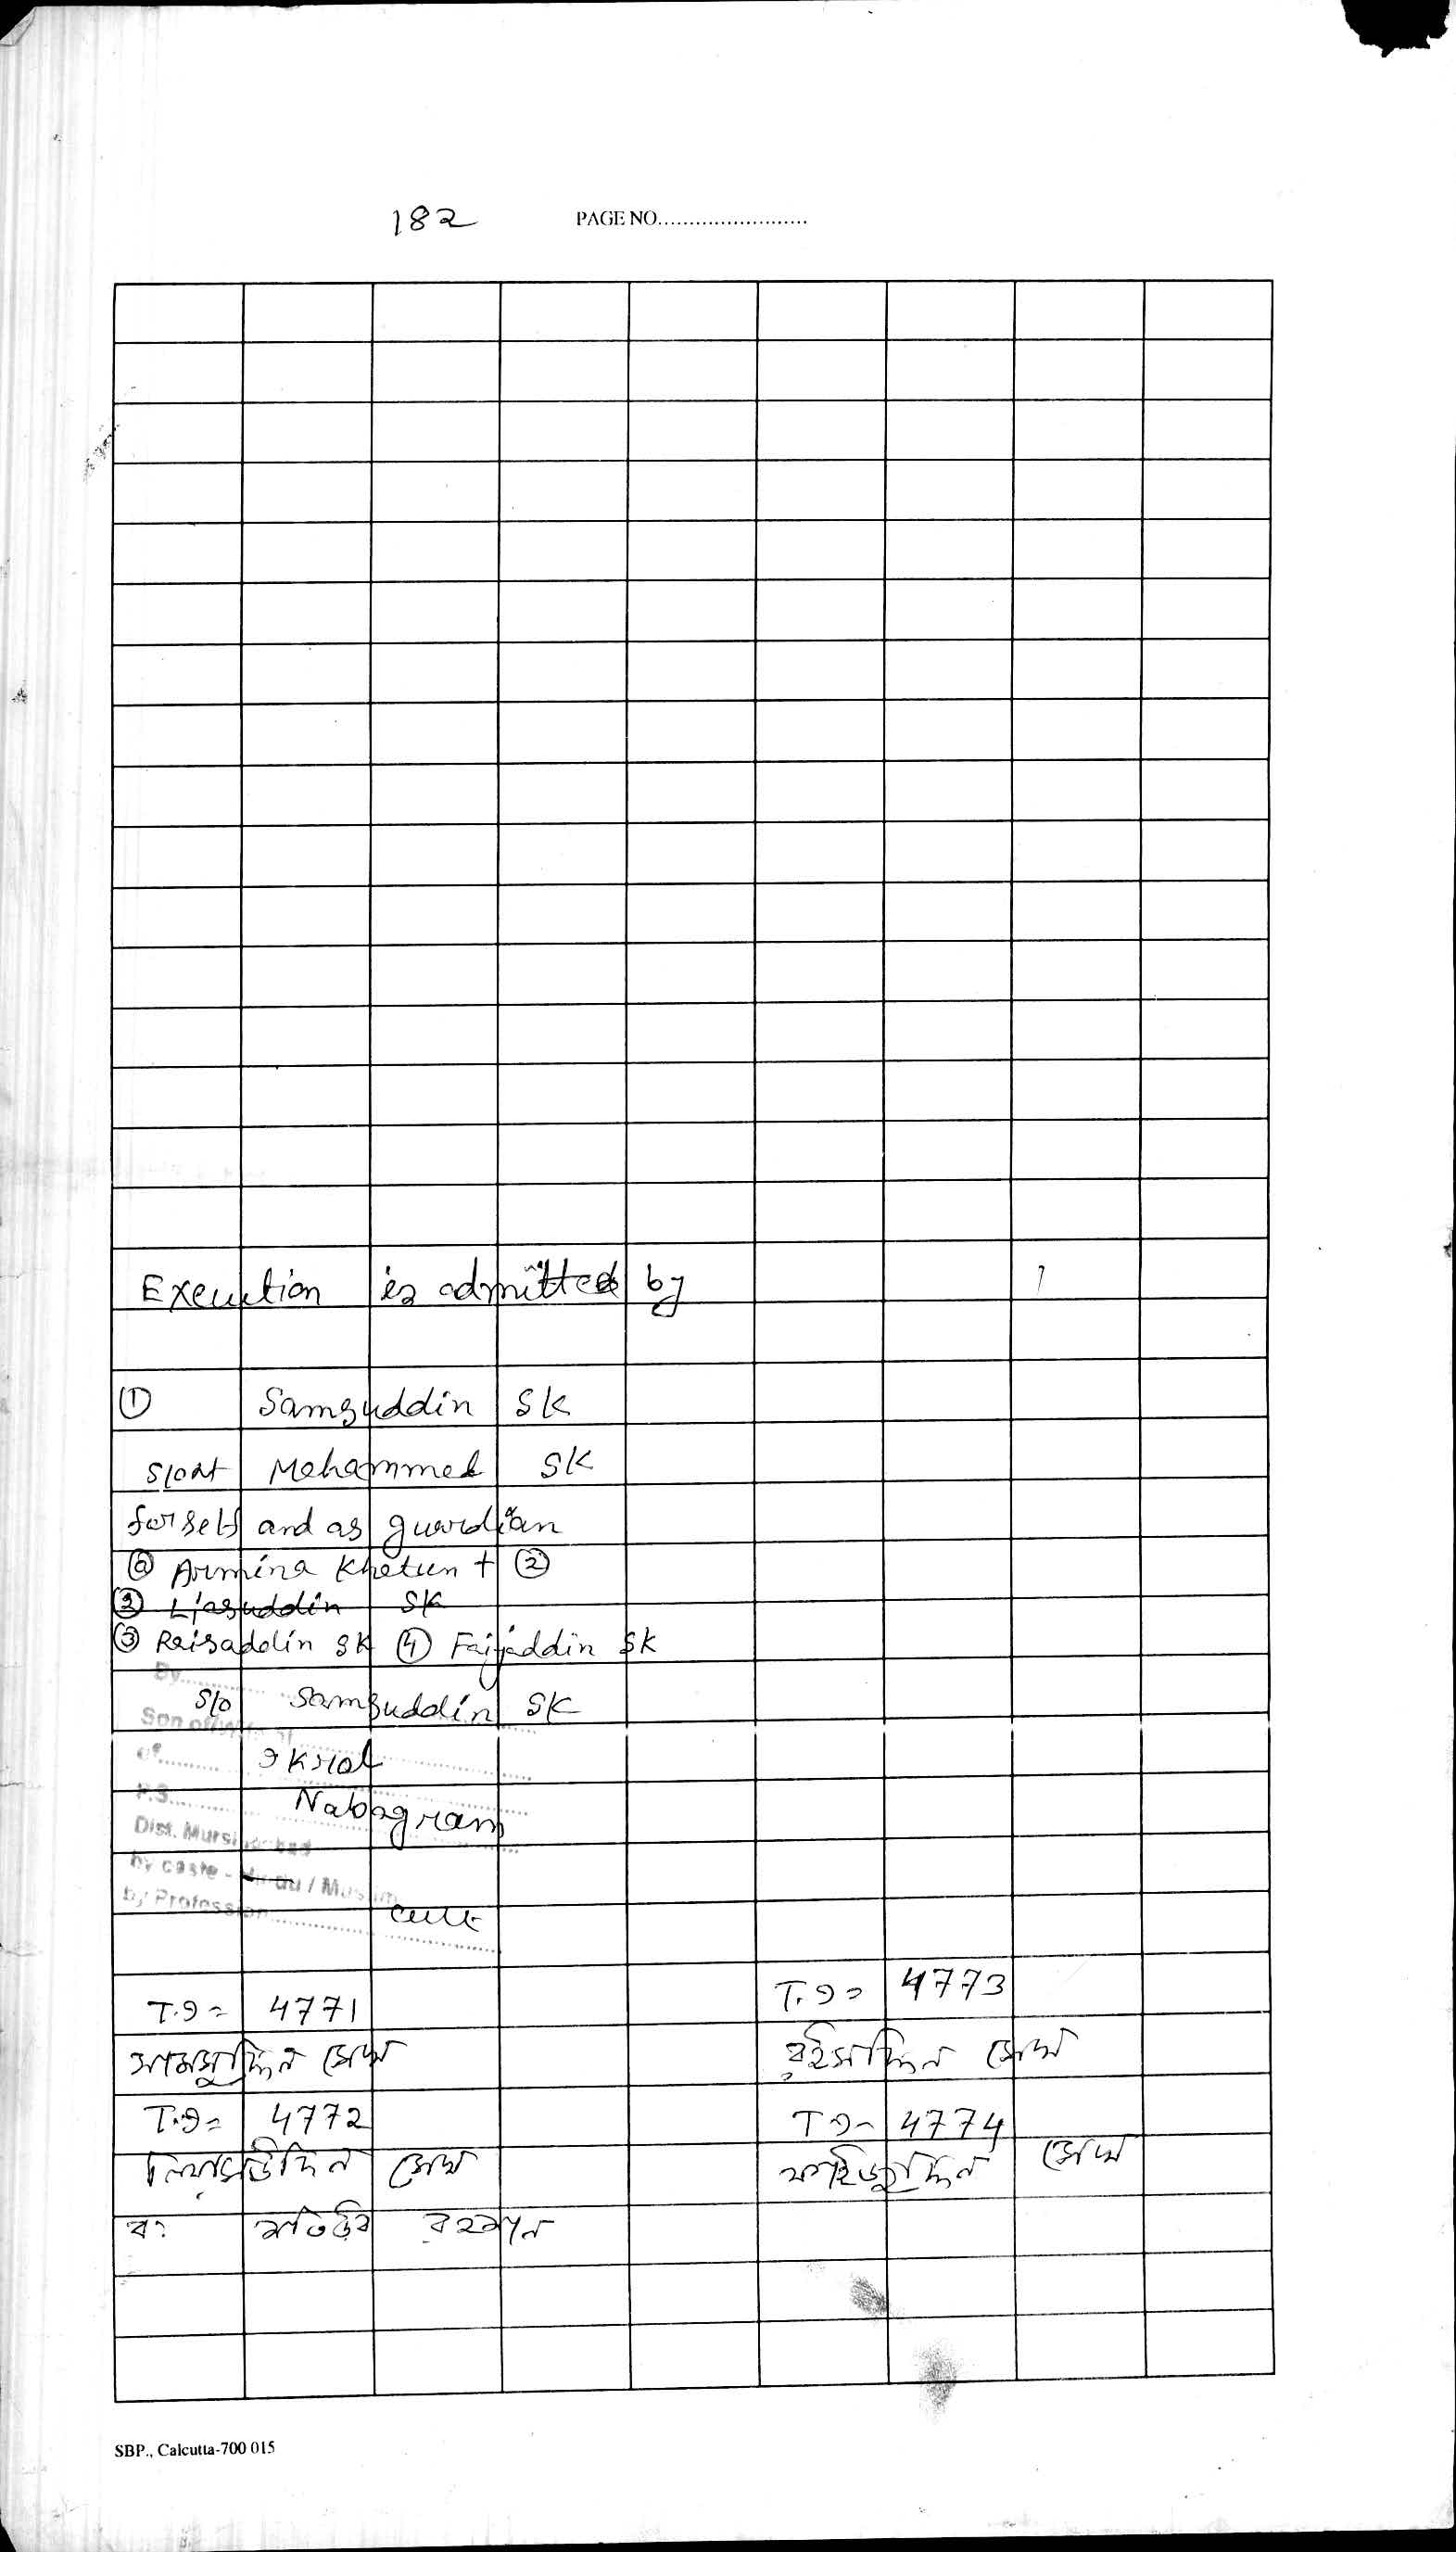 182 PAGE NO........................
Execution is admitted by
① Samsuddin SK
S/o Mohammed SK
for self and as guardian
@ Armina Khatun + ②
② Liasuddin SK
③ Raisaddin SK ④ Faijaddin SK
By...............
S/o Samsuddin SK
Son of
of.......... Ikrol
P.S............ Nabagram
Dist. Mursidabad
by caste - Hindu / Muslim
by Profession.................... Cult
T.I = 4771 T.I = 4773
সামসুদ্দিন সেখ রইসাদ্দিন সেখ
T.I = 4772 T I = 4774
লিয়াসউদ্দিন সেখ ফাইজুদ্দিন সেখ
ব: মতিউর রহমান
SBP., Calcutta-700 015